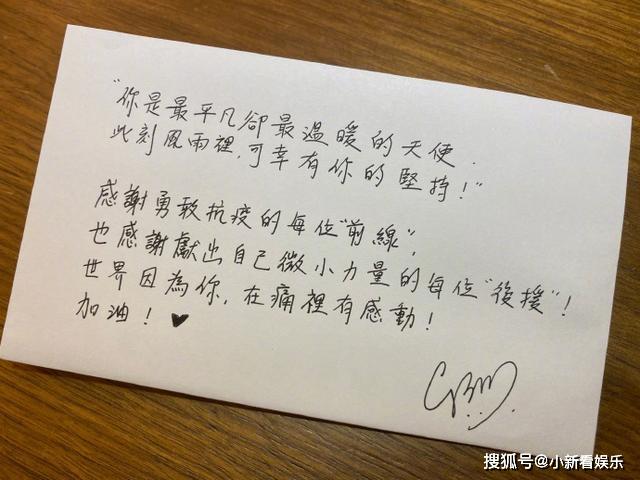 "你是最平凡卻最溫暖的天使.
此刻風雨裡,可幸有你的堅持!"
感謝勇敢抗疫的每位"前線",
也感謝獻出自己微小力量的每位"後援"!
世界因為你,在痛裡有感動!
加油!♥
搜狐号@小新看娱乐